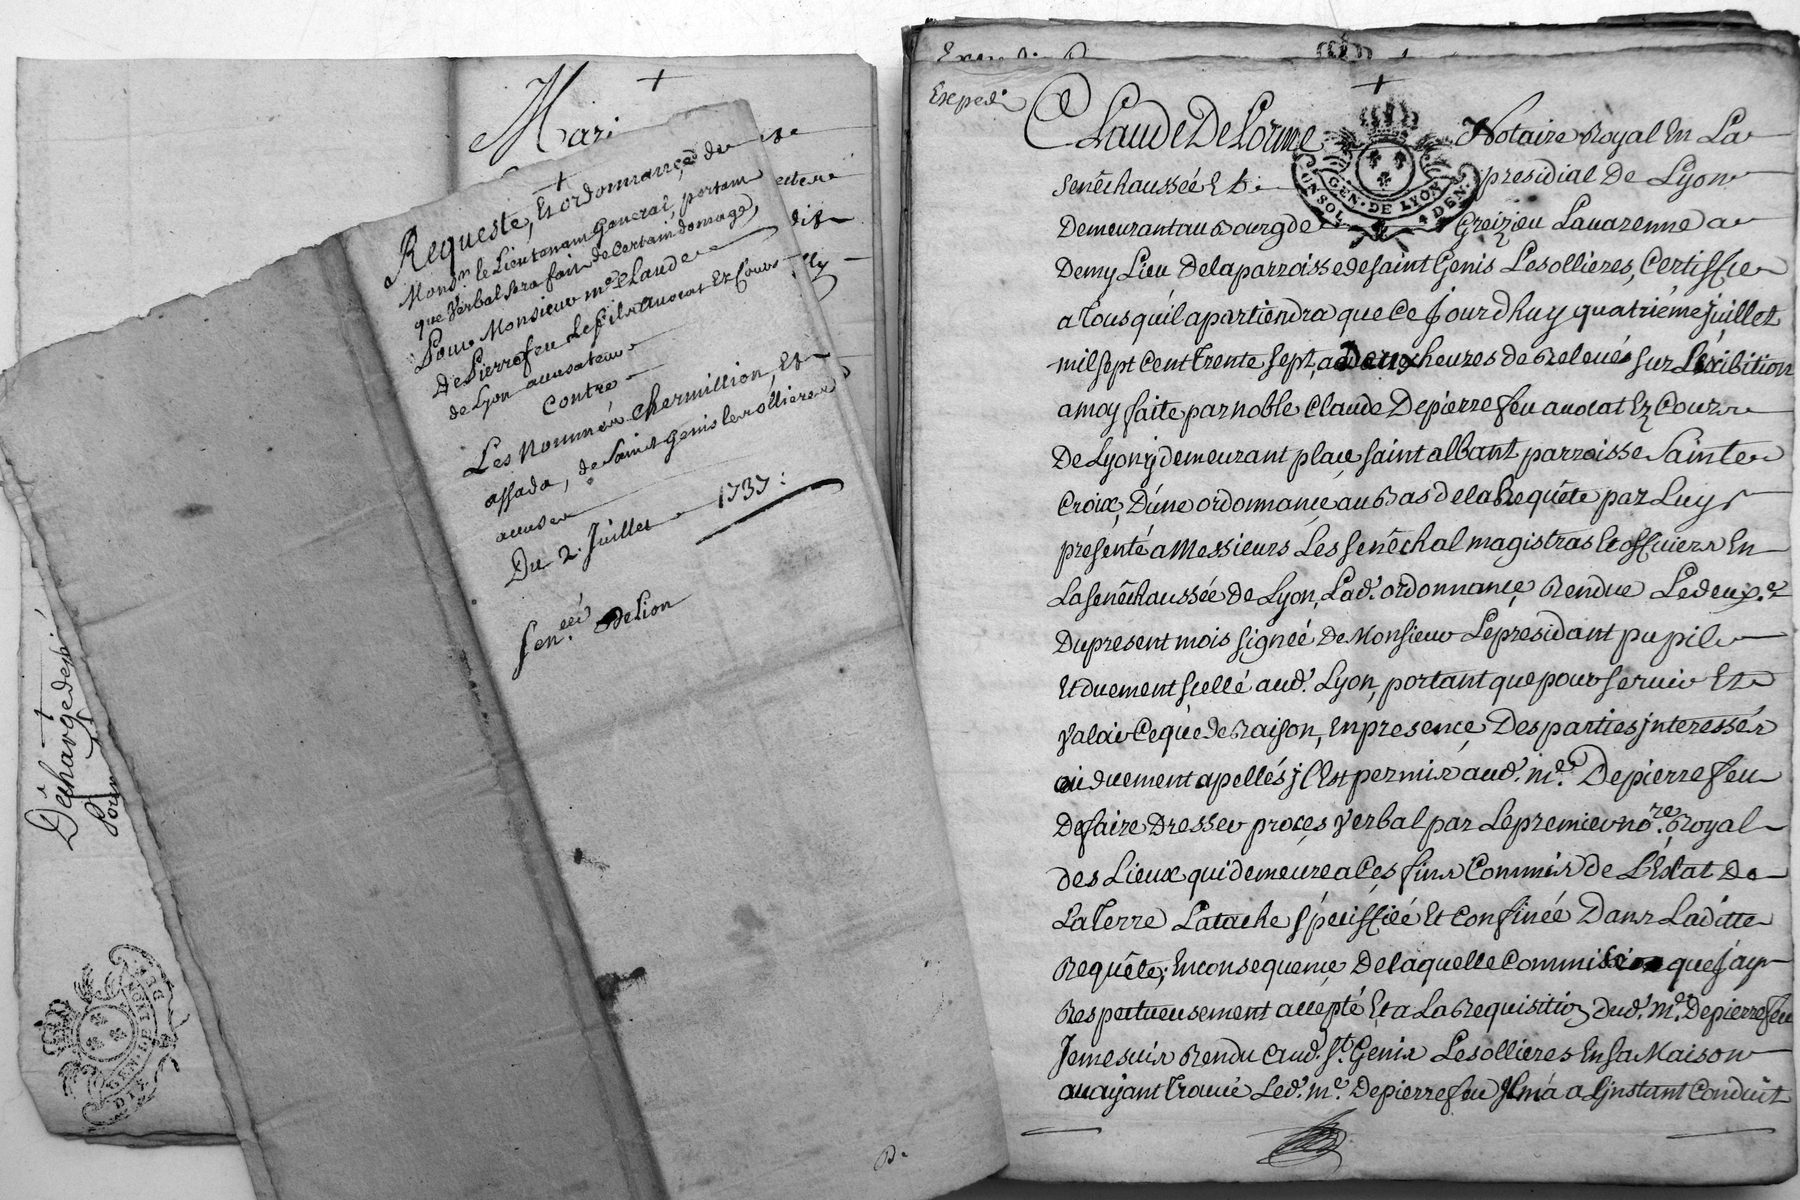 Mari
+
Requeste, Et ordonnance de
Monsr. le Lieutenant General, portant
que Verbal sera fait de Certain domage,
Pour Monsieur me. Claude
De Pierrefeu Le fils avocat Ez Cours
de Lyon accusateur
Contre
Les Nommés Chermillion, Et
assada, de Saint genis les ollieres
accuses
Du 2. Juillet 1737:
Senèè. De Lion
+
Deharge
Pour
GEN. DE LYON
+
Expedié
Claude De Lorme Notaire Royal En La
Senêchaussée Et presidial De Lyon
Demeurant au Bourg de Greizieu Lavarenne a
Demy Lieu De la parroisse de saint Genis Les ollieres, Certiffie
a Tous quil apartiendra que Ce Jourdhuy quatriéme Juillet
mil sept Cent Trente sept, a Deux heures de Relevée sur L'exibition
a moy faite par noble Claude De pierrefeu avocat Ez Cours
De Lyon y demeurant place saint alban parroisse Sainte
Croix, D'une ordonnance au Bas de la Requête par Luy
presenté a Messieurs Les Senêchal magistras Et officiers En
La senêchaussée de Lyon, Lad. ordonnance Rendue Le deuxe.
Du present mois signée de Monsieur Le presidant pupil
Et duement scellé aud. Lyon, portant que pour servir Et
Valoir Ce que de Raison, En presence Des parties interessés
ou duement apellés il Est permis aud. me. De pierrefeu
De faire Dresser proces Verbal par Le premier nore. Royal
Des Lieux qui demeure a Ces fins Commis de L'Etat De
La Terre Latache spéciffiéé Et Confinéé Dans Laditte
Requête; En consequence De laquelle Commission que J'ay
Respectueusement accepté Et a La Requisition Dud. me. De pierrefeu
Je me suis Rendu aud. St. Genis Les ollieres En sa Maison
ou ayant Trouvé Led. me. De pierrefeu Il m'a a L'instant Conduit
UN SOL. GEN. DE LYON 4 DEN.